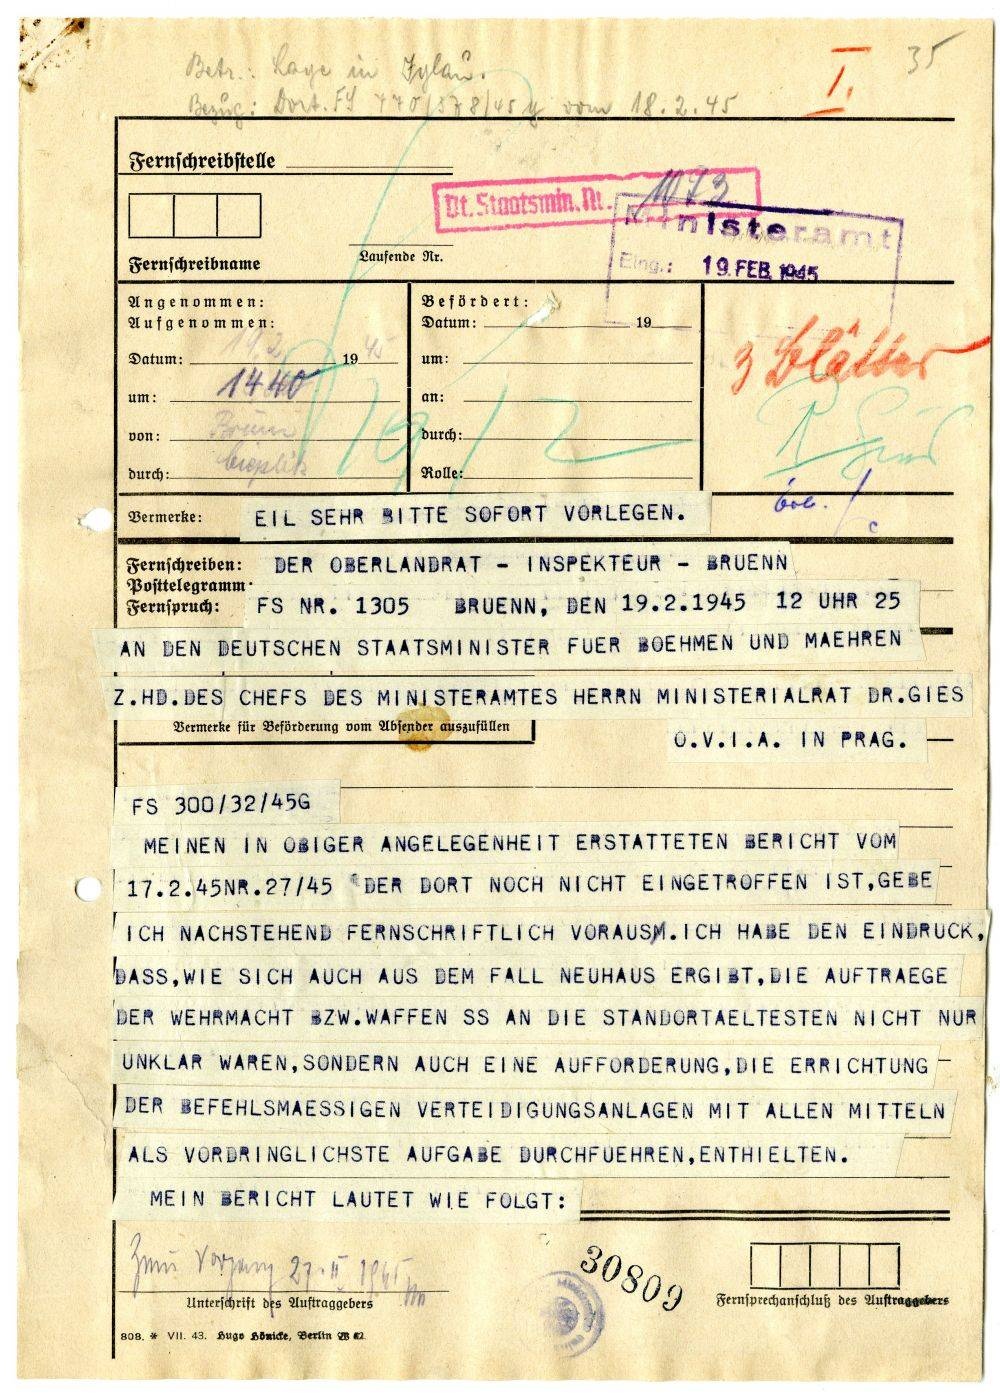 35
I.
Betr.: Lage in Iglau.
Bezug: Dort. FS 770/578/45 g vom 18.2.45
Fernschreibstelle
Dt. Staatsmin. Nr. 1073
Ministeramt
Eing.: 19. FEB. 1945
Fernschreibname
Laufende Nr.
Angenommen:
Aufgenommen:
Datum: 19.2. 19 45
um: 1440
von: Brünn
durch:
Befördert:
Datum: 19
um:
an:
durch:
Rolle:
3 Blätter
19/2
Vermerke: EIL SEHR BITTE SOFORT VORLEGEN.
Fernschreiben: DER OBERLANDRAT - INSPEKTEUR - BRUENN
Posttelegramm:
Fernspruch: FS NR. 1305 BRUENN, DEN 19.2.1945 12 UHR 25
AN DEN DEUTSCHEN STAATSMINISTER FUER BOEHMEN UND MAEHREN
Z.HD.DES CHEFS DES MINISTERAMTES HERRN MINISTERIALRAT DR.GIES
Vermerke für Beförderung vom Absender auszufüllen
O.V.I.A. IN PRAG. —
FS 300/32/45G
MEINEN IN OBIGER ANGELEGENHEIT ERSTATTETEN BERICHT VOM
17.2.45NR.27/45 DER DORT NOCH NICHT EINGETROFFEN IST,GEBE
ICH NACHSTEHEND FERNSCHRIFTLICH VORAUSM.ICH HABE DEN EINDRUCK,
DASS,WIE SICH AUCH AUS DEM FALL NEUHAUS ERGIBT,DIE AUFTRAEGE
DER WEHRMACHT BZW.WAFFEN SS AN DIE STANDORTAELTESTEN NICHT NUR
UNKLAR WAREN,SONDERN AUCH EINE AUFFORDERUNG,DIE ERRICHTUNG
DER BEFEHLSMAESSIGEN VERTEIDIGUNGSANLAGEN MIT ALLEN MITTELN
ALS VORDRINGLICHSTE AUFGABE DURCHFUEHREN,ENTHIELTEN.
MEIN BERICHT LAUTET WIE FOLGT:
Zum Vorgang 27.II 1945
Unterschrift des Auftraggebers
30809
Fernsprechanschluß des Auftraggebers
808. * VII. 43. Hugo Hönicke, Berlin W 62.